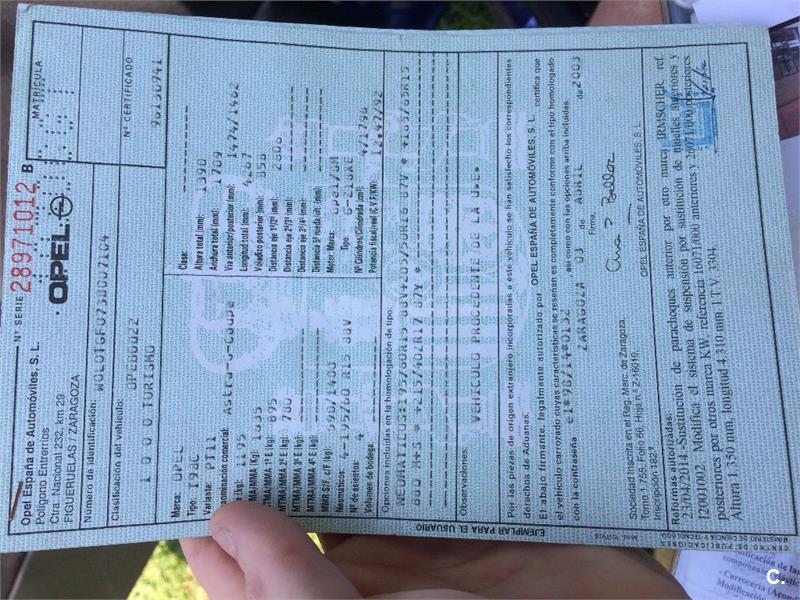 Opel España de Automóviles, S. L.
Polígono Entrerríos
Ctra. Nacional 232, km 29
FIGUERUELAS / ZARAGOZA
Nº SERIE 28971012 B
OPEL
MATRÍCULA
Número de identificación:
Clasificación del vehículo: OPEB0022
1000 TURISMO
Nº CERTIFICADO
98130941
Marca: OPEL
Tipo: T98C
Variante: PT11
Denominación comercial: Astra-G-Coupe
1195
MTMA/MMA (kg): 1835
MTMA/MMA 1º E (kg): 895
MTMA/MMA 2º E (kg): 780
MTMA/MMA 3º E (kg):
MTMA/MMA 4º E (kg):
MMR S/F, c/F (kg): 590/1400
Neumáticos: 4-195/60 R15 88V
Nº de asientos: 4
Volumen de bodega:
Clase:
Altura total (mm): 1390
Anchura total (mm): 1709
Vía anterior/posterior (mm): 1474/1462
Longitud total (mm): 4267
Voladizo posterior (mm): 838
Distancia eje 1º/2º (mm): 2606
Distancia eje 2º/3º (mm):
Distancia eje 3º/4º (mm):
Distancia 5ª rueda/últ. (mm):
Motor: Marca: Opel/GM
Tipo: G-Z18XE
Nº Cilindros/Cilindrada (cm³): 4/1796
Potencia fiscal/real (C.V.F/KW): 12.47/92
Opciones incluidas en la homologación de tipo:
NEUMATICOS:195/60R15 88V*205/50R16 87V * *185/65R15
88Q M+S * *215/40ZR17 87Y *
Observaciones:
VEHICULO PROCEDENTE DE LA U.E.
Por las piezas de origen extranjero incorporadas a este vehículo se han satisfecho los correspondientes
derechos de Aduanas.
El abajo firmante, legalmente autorizado por OPEL ESPAÑA DE AUTOMÓVILES, S. L. certifica que
el vehículo carrozado cuyas características se reseñan es completamente conforme con el tipo homologado
con la contraseña e1*98/14*0132 , así como con las opciones arriba incluidas.
ZARAGOZA 03 de ABRIL de 2003
Firma,
OPEL ESPAÑA DE AUTOMÓVILES, S. L.
Sociedad Inscrita en el Reg. Merc. de Zaragoza,
Tomo 1.755, Folio 66, Hoja n.º Z-16010,
Inscripción 182.ª
Reformas autorizadas:
23/04/2014.-Sustitución de parachoques anterior por otro marca IRMSCHER ref.
12001002. Modifica el sistema de suspensión por sustitución de muelles anteriores y
posteriores por otros marca KW referencia 16071/000 anteriores y 26071/000 posteriores
Altura 1.350 mm, longitud 4.310 mm I.T.V. 3304.
EJEMPLAR PARA EL USUARIO
CENTRO DE PUBLICACIONES
MINISTERIO DE CIENCIA Y TECNOLOGÍA
- Carrocería
C.